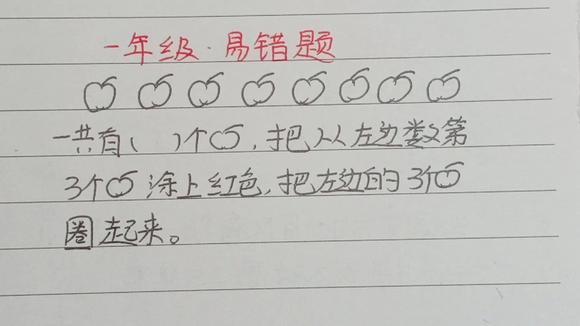 一年级·易错题
一共有( )个🍎,把从左边数第
3个🍎涂上红色,把左边的3个🍎
圈起来。